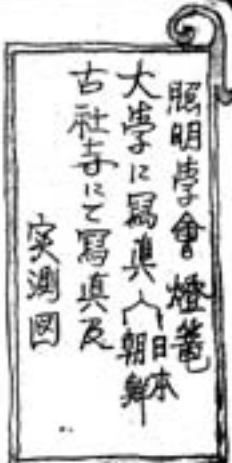 照明學會燈篭
大學に寫真
日本
朝鮮
古社寺にて寫真及
実測図